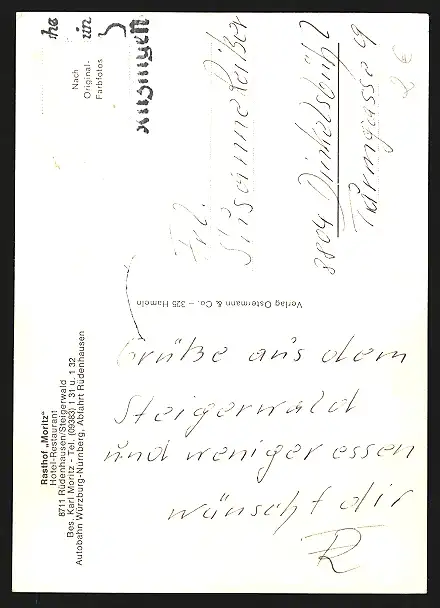 Rasthof „Moritz"
Hotel-Restaurant
8711 Rüdenhausen/Steigerwald
Bes. Karl Moritz - Tel. (09383) 1 31 u. 1 32
Autobahn Würzburg-Nürnberg, Abfahrt Rüdenhausen
Nach
Original-
Farbfotos
Verlag Ostermann & Co. – 325 Hameln
Grüße aus dem
Steigerwald
und weniger essen
wünscht dir
R
Frl.
Susanne
8804 Dinkelsbühl
Turmgasse 9
2 €